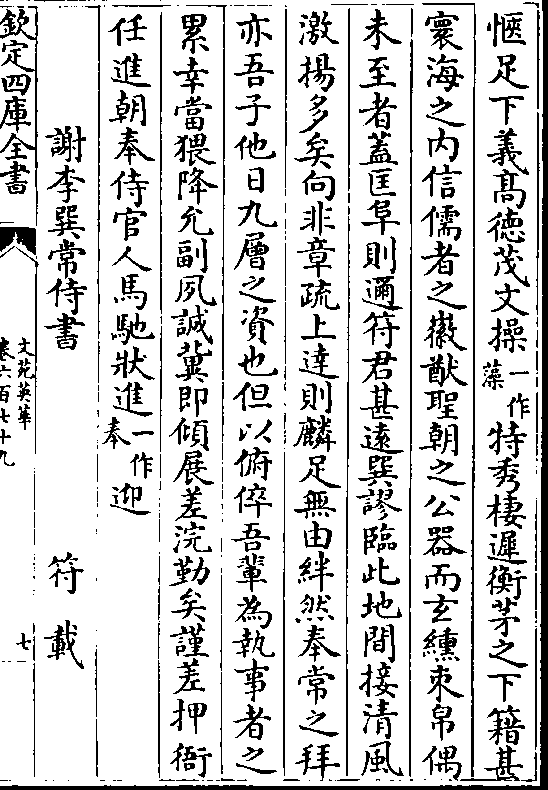 愜足下義髙德茂文操一作藻特秀棲遲衡茅之下籍甚
寰海之内信儒者之徽猷聖朝之公器而玄纁束帛偶
未至者蓋匡阜則邇符君甚遠巽謬臨此地間接清風
激揚多矣向非章疏上達則麟足無由絆然奉常之拜
亦吾子他日九層之資也但以俯倅吾輩為執事者之
累幸當猥降允副夙誠冀即傾展差浣勤矣謹差押衙
任進朝奉侍官人馬馳狀進一作奉迎
謝李巽常侍書 符載
欽定四庫全書
文苑英華
卷六百七十九
七